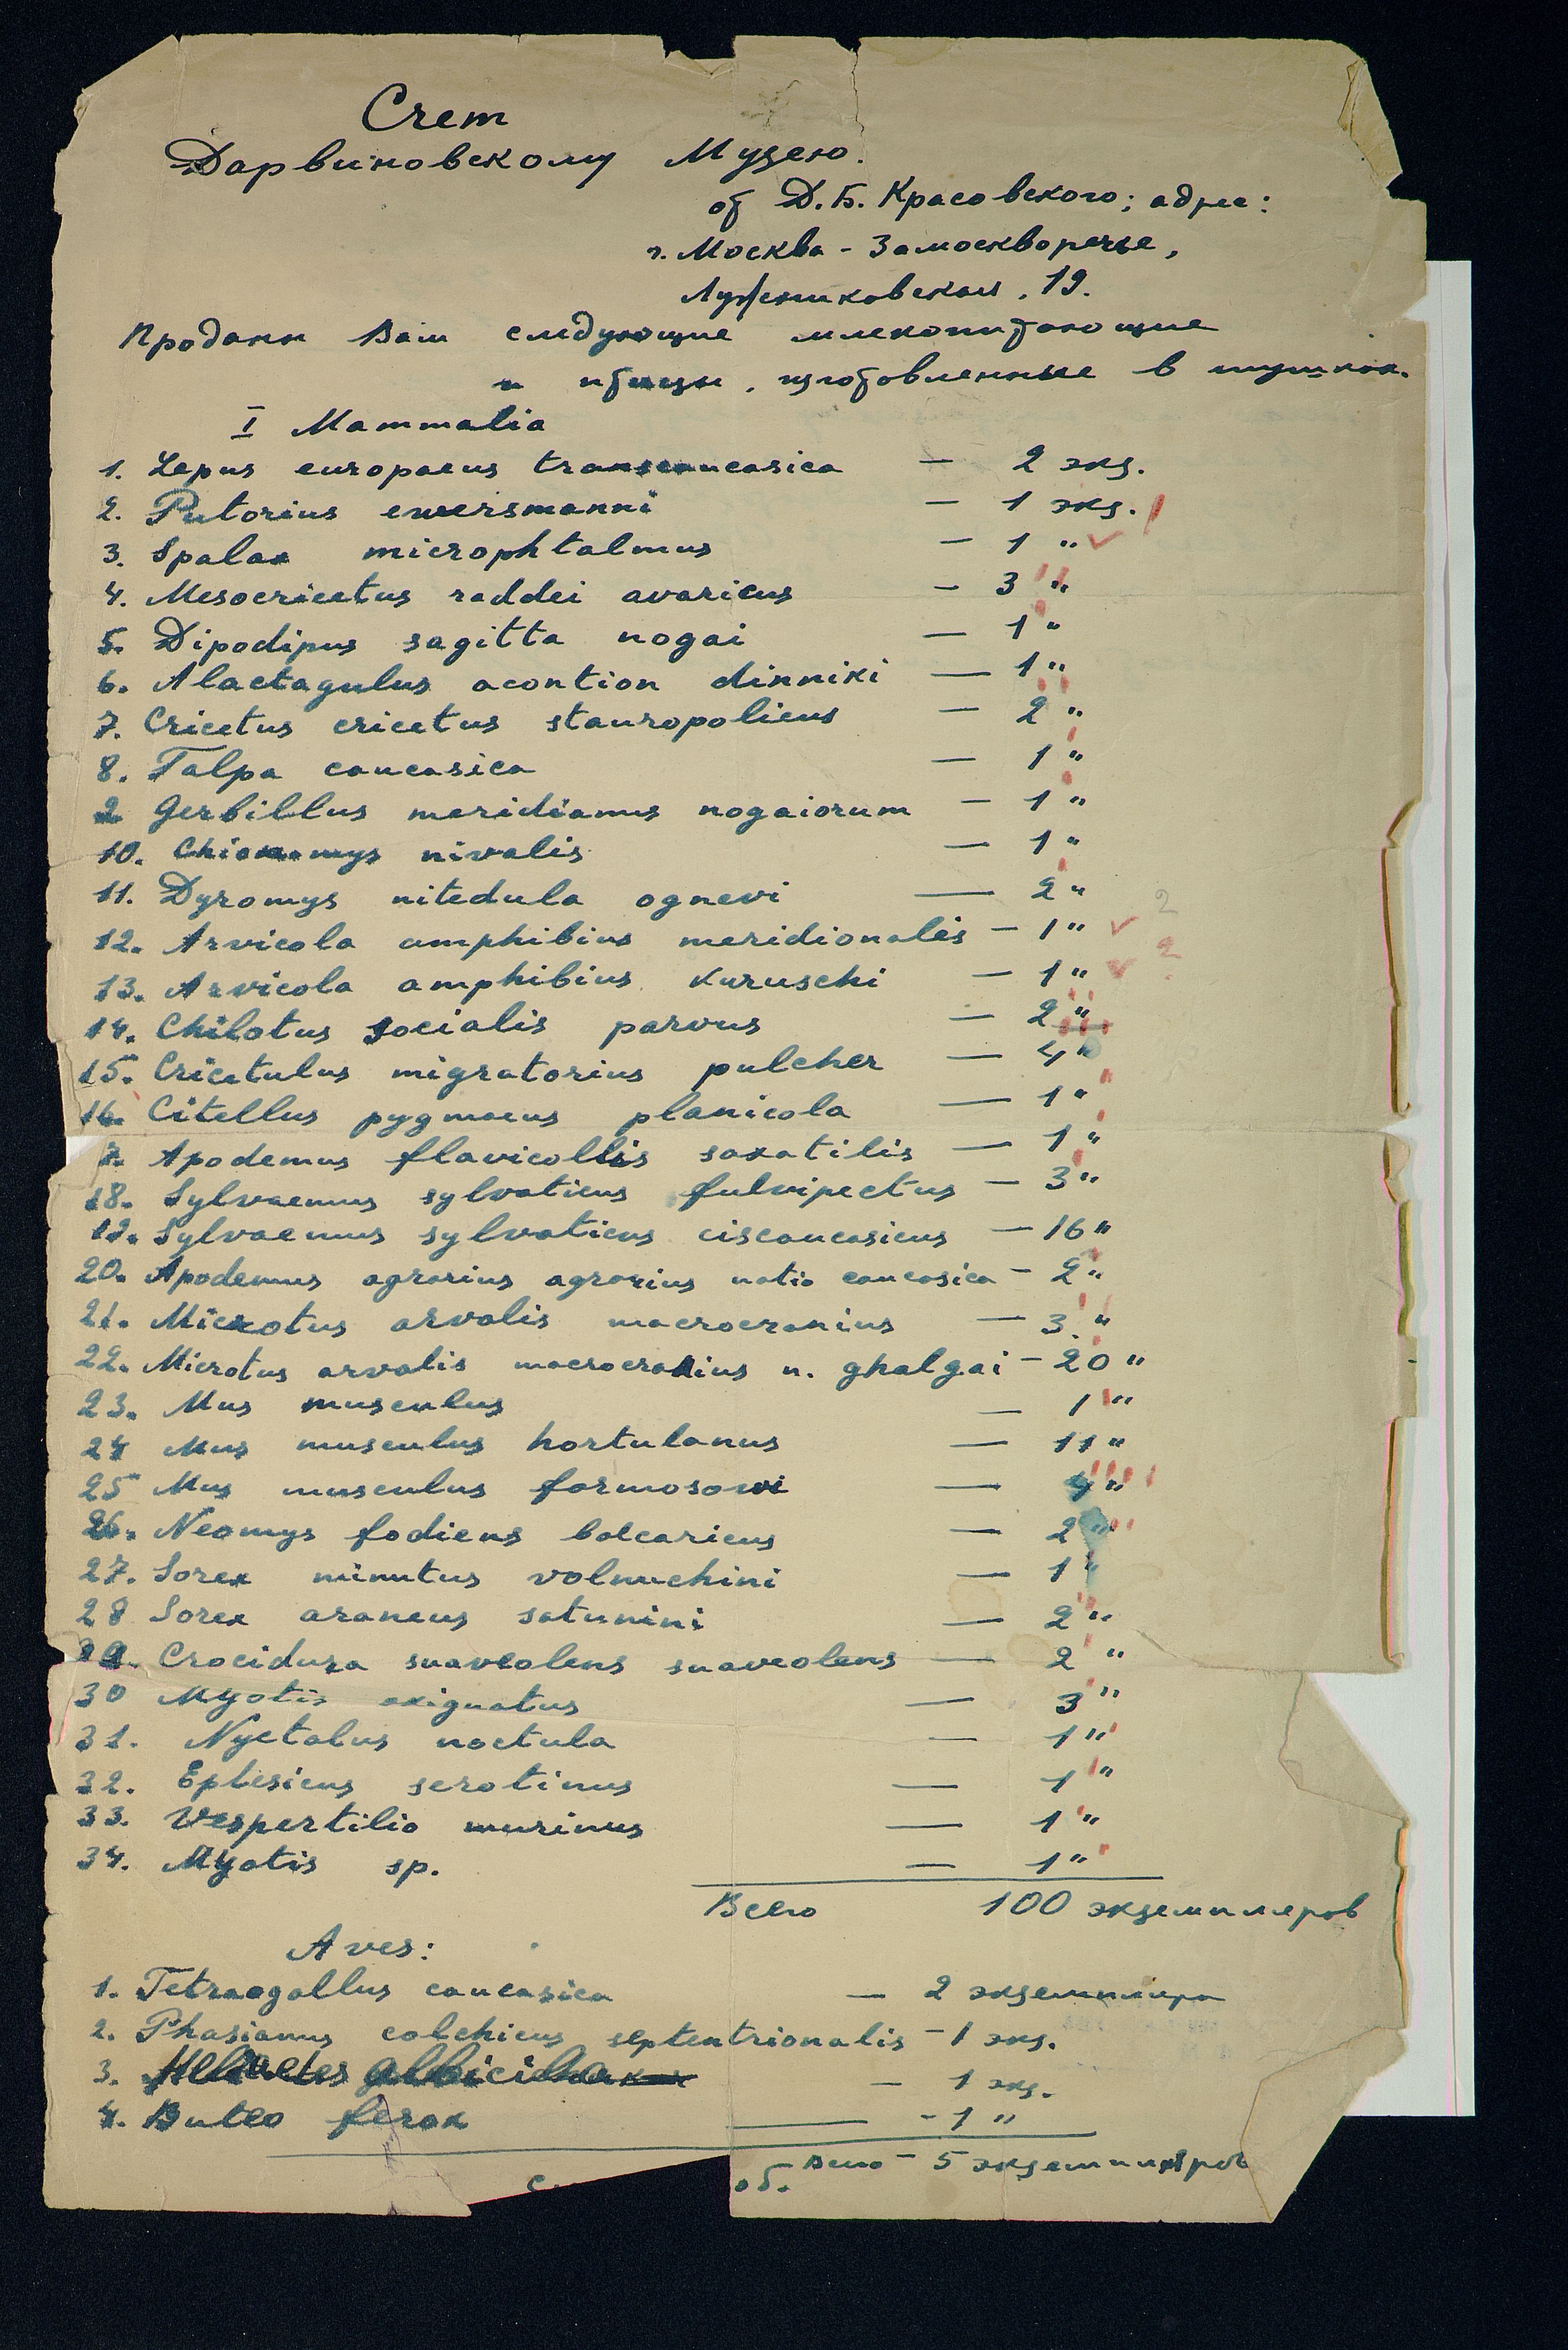 Счет
Дарвиновскому Музею.
от Д. Б. Красовского; адрес:
г. Москва - Замоскворечье,
Лужниковская, 19.
Проданы Вам следующие млекопитающие
и птицы, изготовленные в тушках.
I Mammalia
1. Lepus europaeus transcaucasica — 2 экз.
2. Putorius ewersmanni — 1 экз.
3. Spalax microphtalmus — 1 "
4. Mesocricetus raddei avaricus — 3 "
5. Dipodipus sagitta nogai — 1 "
6. Alactagulus acontion dinniki — 1 "
7. Cricetus cricetus stauropolicus — 2 "
8. Talpa caucasica — 1 "
9 Gerbillus meridianus nogaiorum — 1 "
10. Chionomys nivalis — 1 "
11. Dyromys nitedula ognevi — 2 "
12. Arvicola amphibius meridionalis — 1 " 2
13. Arvicola amphibius kuruschi — 1 " 2
14. Chilotus socialis parvus — 2 "
15. Cricetulus migratorius pulcher — 4 "
16. Citellus pygmaeus planicola — 1 "
7. Apodemus flavicollis saxatilis — 1 "
18. Sylvaemus sylvaticus fulvipectus — 3 "
19. Sylvaemus sylvaticus ciscaucasicus — 16 "
20. Apodemus agrarius agrarius natio caucasica — 2 "
21. Microtus arvalis macrocranius — 3. "
22. Microtus arvalis macrocranius n. ghalgai — 20 "
23. Mus musculus — 1 "
24 Mus musculus hortulanus — 11 "
25 Mus musculus formosowi — 4 "
26. Neomys fodiens balcaricus — 2 "
27. Sorex minutus volnuchini — 1 "
28 Sorex araneus satunini — 2 "
29. Crocidura suaveolens suaveolens — 2 "
30 Myotis oxignatus — 3 "
31. Nyctalus noctula — 1 "
32. Eptesicus serotinus — 1 "
33. Vespertilio murinus — 1 "
34. Myotis sp. — 1 "
Всего 100 экземпляров
Aves:
1. Tetraogallus caucasica — 2 экземпляра
2. Phasianus colchicus septentrionalis — 1 экз.
3. albicilla — 1 экз.
4. Buteo ferox — 1 "
Всего — 5 экземпляров
об.